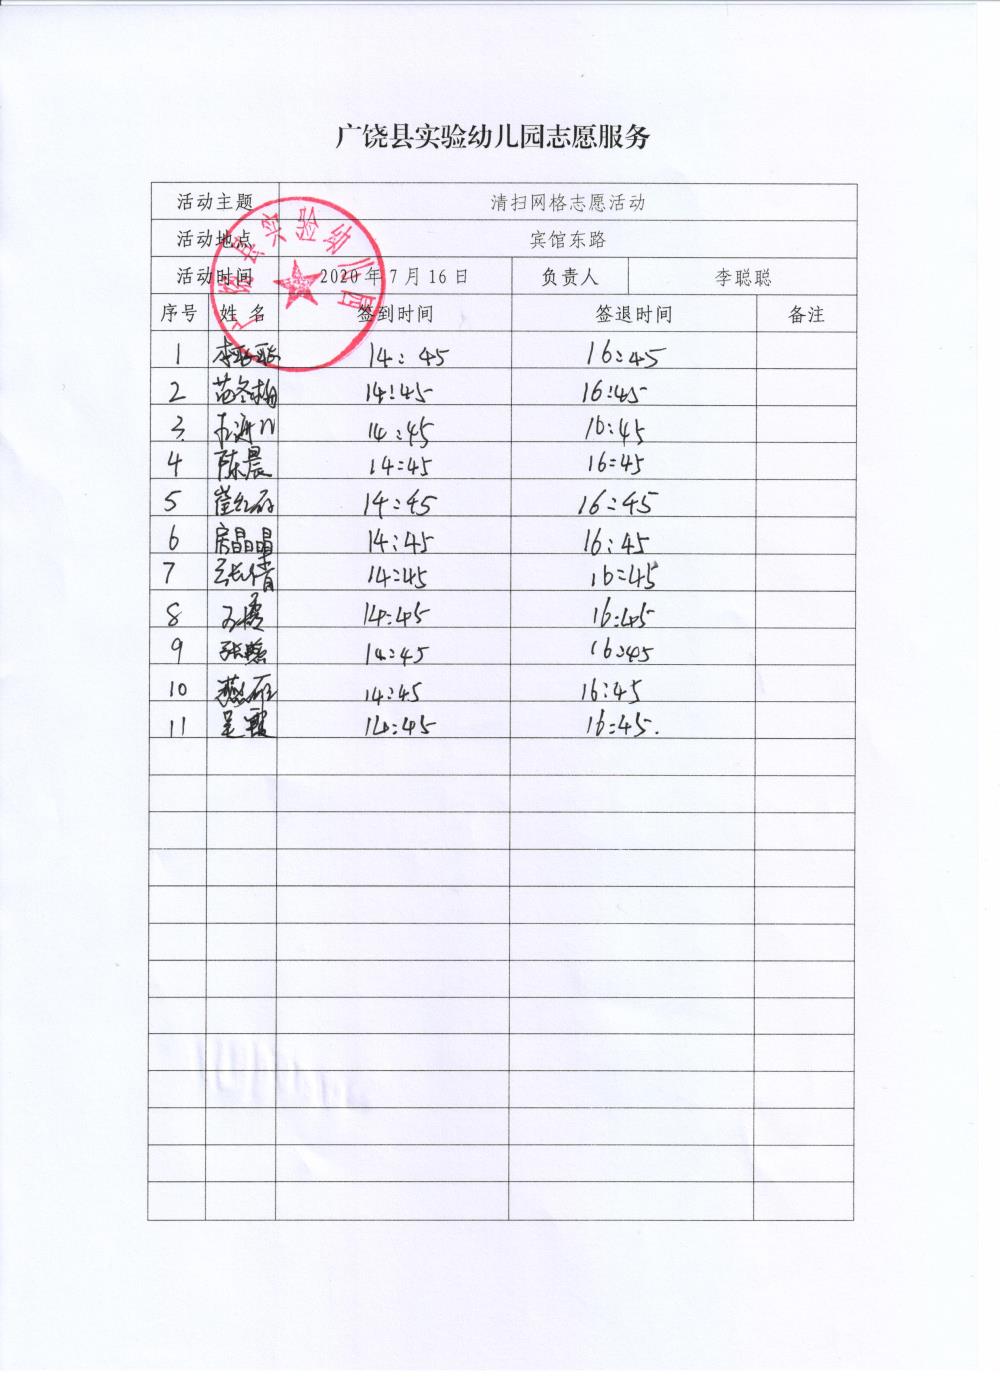 广饶县实验幼儿园志愿服务
活动主题 清扫网格志愿活动
活动地点 宾馆东路
活动时间 2020年7月16日 负责人 李聪聪
广饶县实验幼儿园
序号 姓名 签到时间 签退时间 备注
1 李聪聪 14:45 16:45
2 范冬梅 14:45 16:45
3 14:45 16:45
4 陈晨 14:45 16:45
5 崔 14:45 16:45
6 房晶晶 14:45 16:45
7 张倩 14:45 16:45
8 14:45 16:45
9 张 14:45 16:45
10 14:45 16:45
11 14:45 16:45.